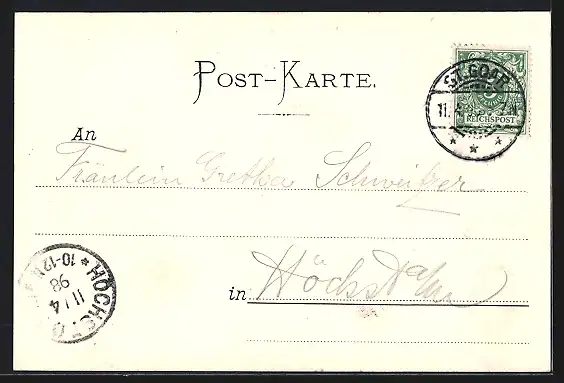 POST-KARTE.
ST. GOAR
11.
REICHSPOST
An
Fräulein Gretha Schweitzer
in Höchst a/m
HÖCHST
11 4
98
10-12